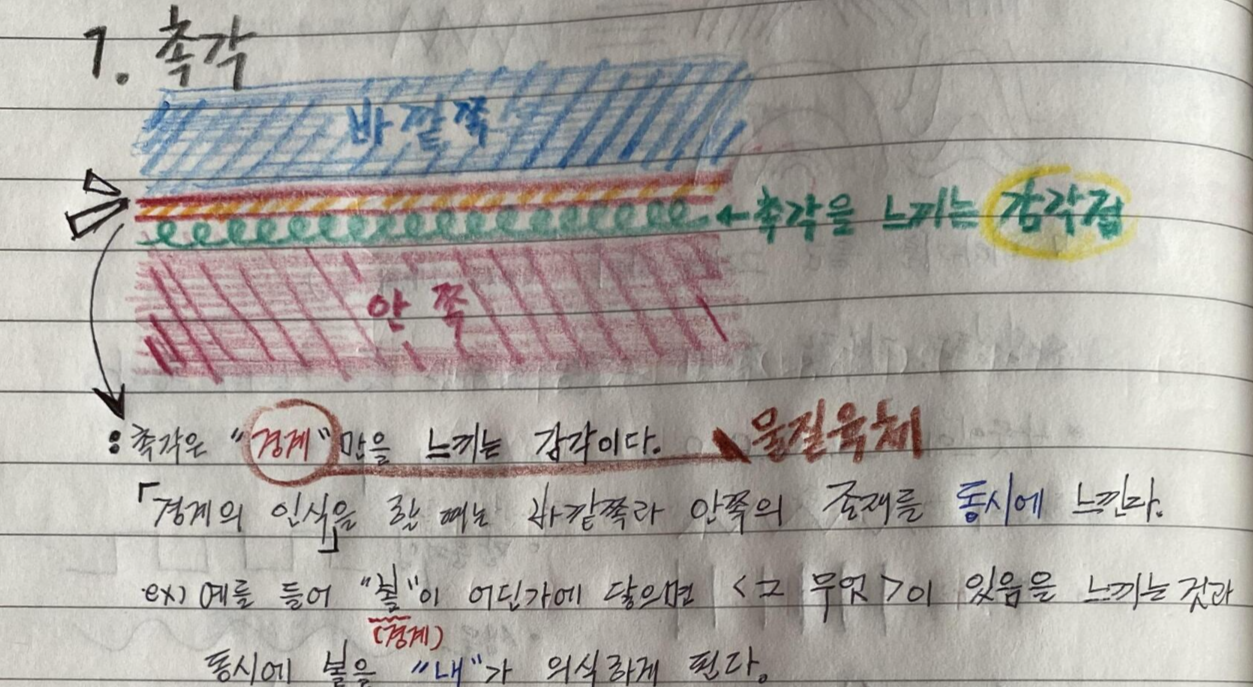 1. 촉각
바깥쪽
←촉각을 느끼는 감각점
안쪽
: 촉각은 "경계"만을 느끼는 감각이다. 물질육체
「경계의 인식을」 할 때는 바깥쪽과 안쪽의 존재를 동시에 느낀다.
ex) 예를 들어 "볼"이 어딘가에 닿으면 <그 무엇>이 있음을 느끼는 것과
(경계)
동시에 볼을 "내"가 의식하게 된다.